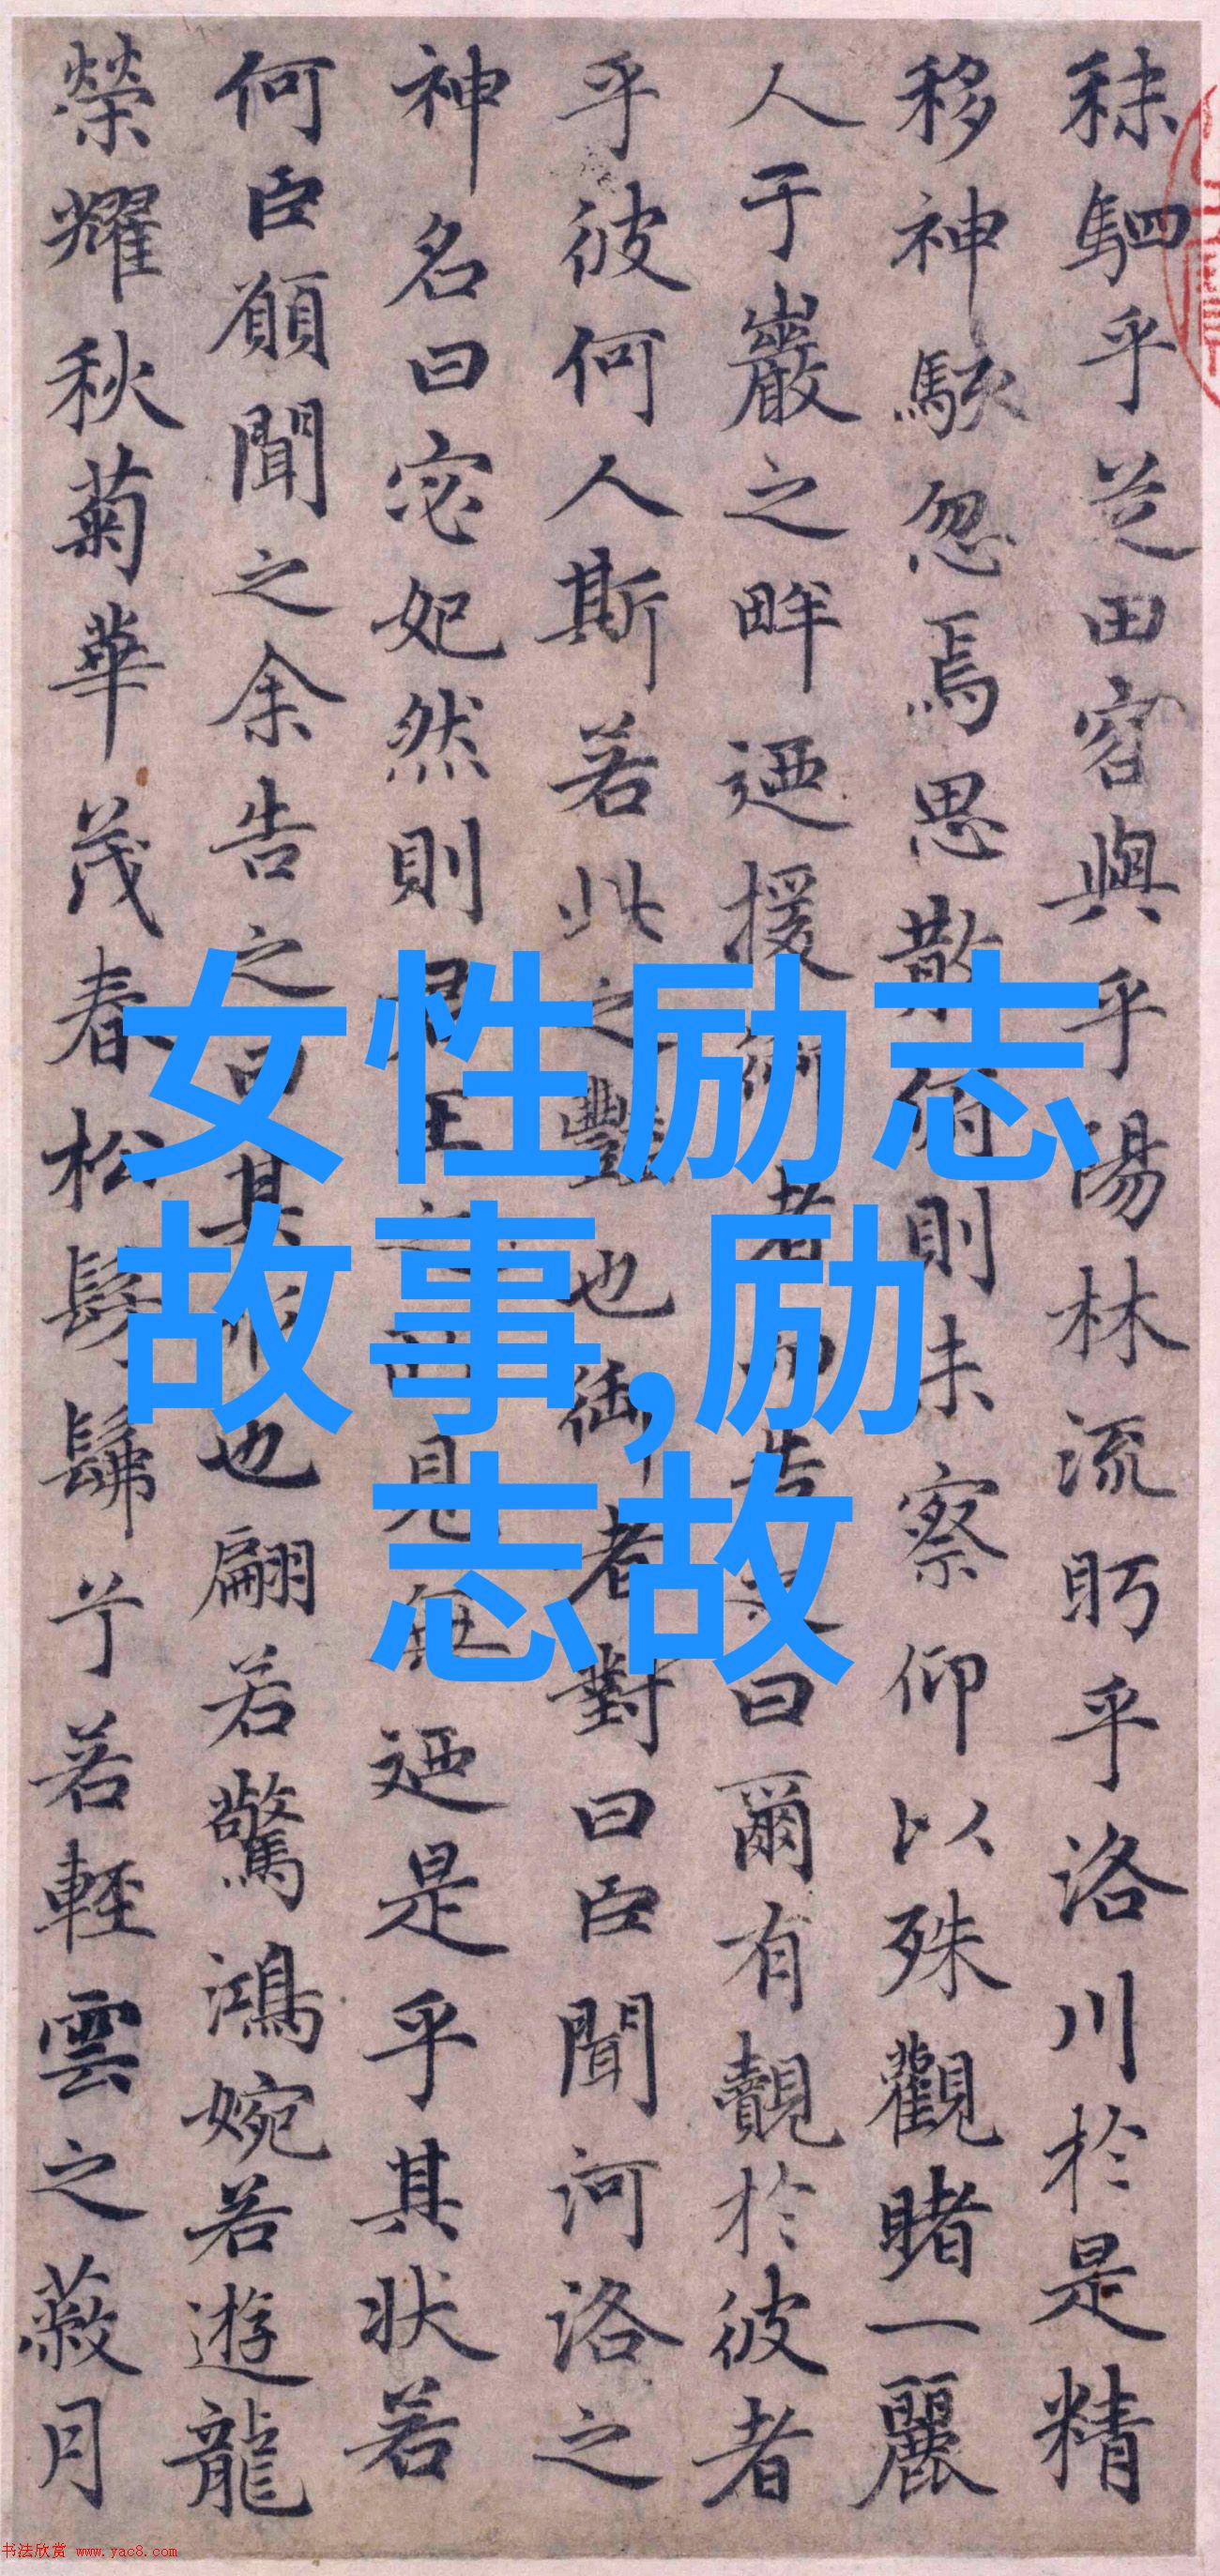 秣駟乎芝田容與乎陽林流眄乎洛川於是精
移神駭忽焉思散俯則未察仰以殊觀睹一麗
人于巖之畔迺援御者而告之曰爾有覿於彼者
乎彼何人斯若此之豔也御者對曰臣聞河洛之
神名曰宓妃然則君王之所見無迺是乎其狀若
何臣願聞之余告之曰其形也翩若驚鴻婉若遊龍
榮耀秋菊華茂春松髣髴兮若輕雲之蔽月
女性励志
故事,励
志故
书法欣赏 www.yac8.com